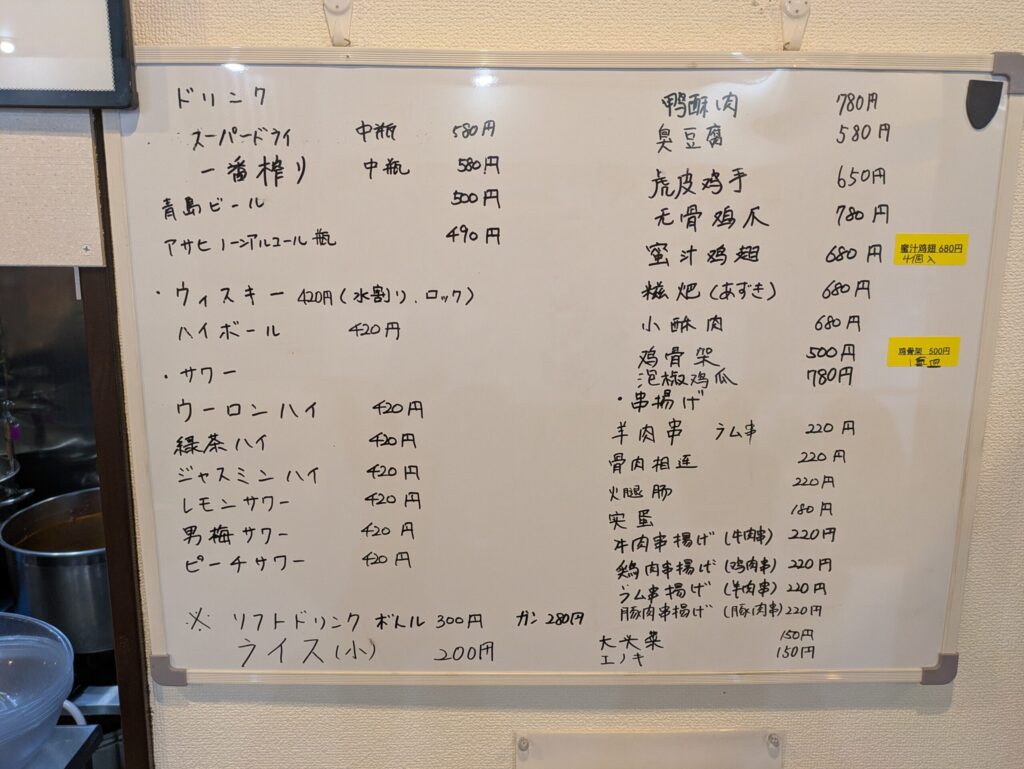 ドリンク
スーパードライ 中瓶 580円
一番搾り 中瓶 580円
青島ビール 500円
アサヒノーンアルコール瓶 490円
・ウィスキー 420円(水割り、ロック)
ハイボール 420円
・サワー
ウーロンハイ 420円
緑茶ハイ 420円
ジャスミンハイ 420円
レモンサワー 420円
男梅サワー 420円
ピーチサワー 420円
※ソフトドリンク ボトル 300円 カン 280円
ライス(小) 200円
鸭酥肉 780円
臭豆腐 580円
虎皮鸡手 650円
无骨鸡爪 780円
蜜汁鸡翅 680円
蜜汁鸡翅 680円
4個入
糍粑(あずき) 680円
小酥肉 680円
鸡骨架 500円
鸡骨架 500円
泡椒鸡爪 780円
・串揚げ
羊肉串 ラム串 220円
骨肉相连 220円
火腿肠 220円
実蛋 180円
牛肉串揚げ(牛肉串) 220円
鶏肉串揚げ(鸡肉串) 220円
ラム串揚げ(羊肉串) 220円
豚肉串揚げ(豚肉串) 220円
大头菜 150円
エノキ 150円